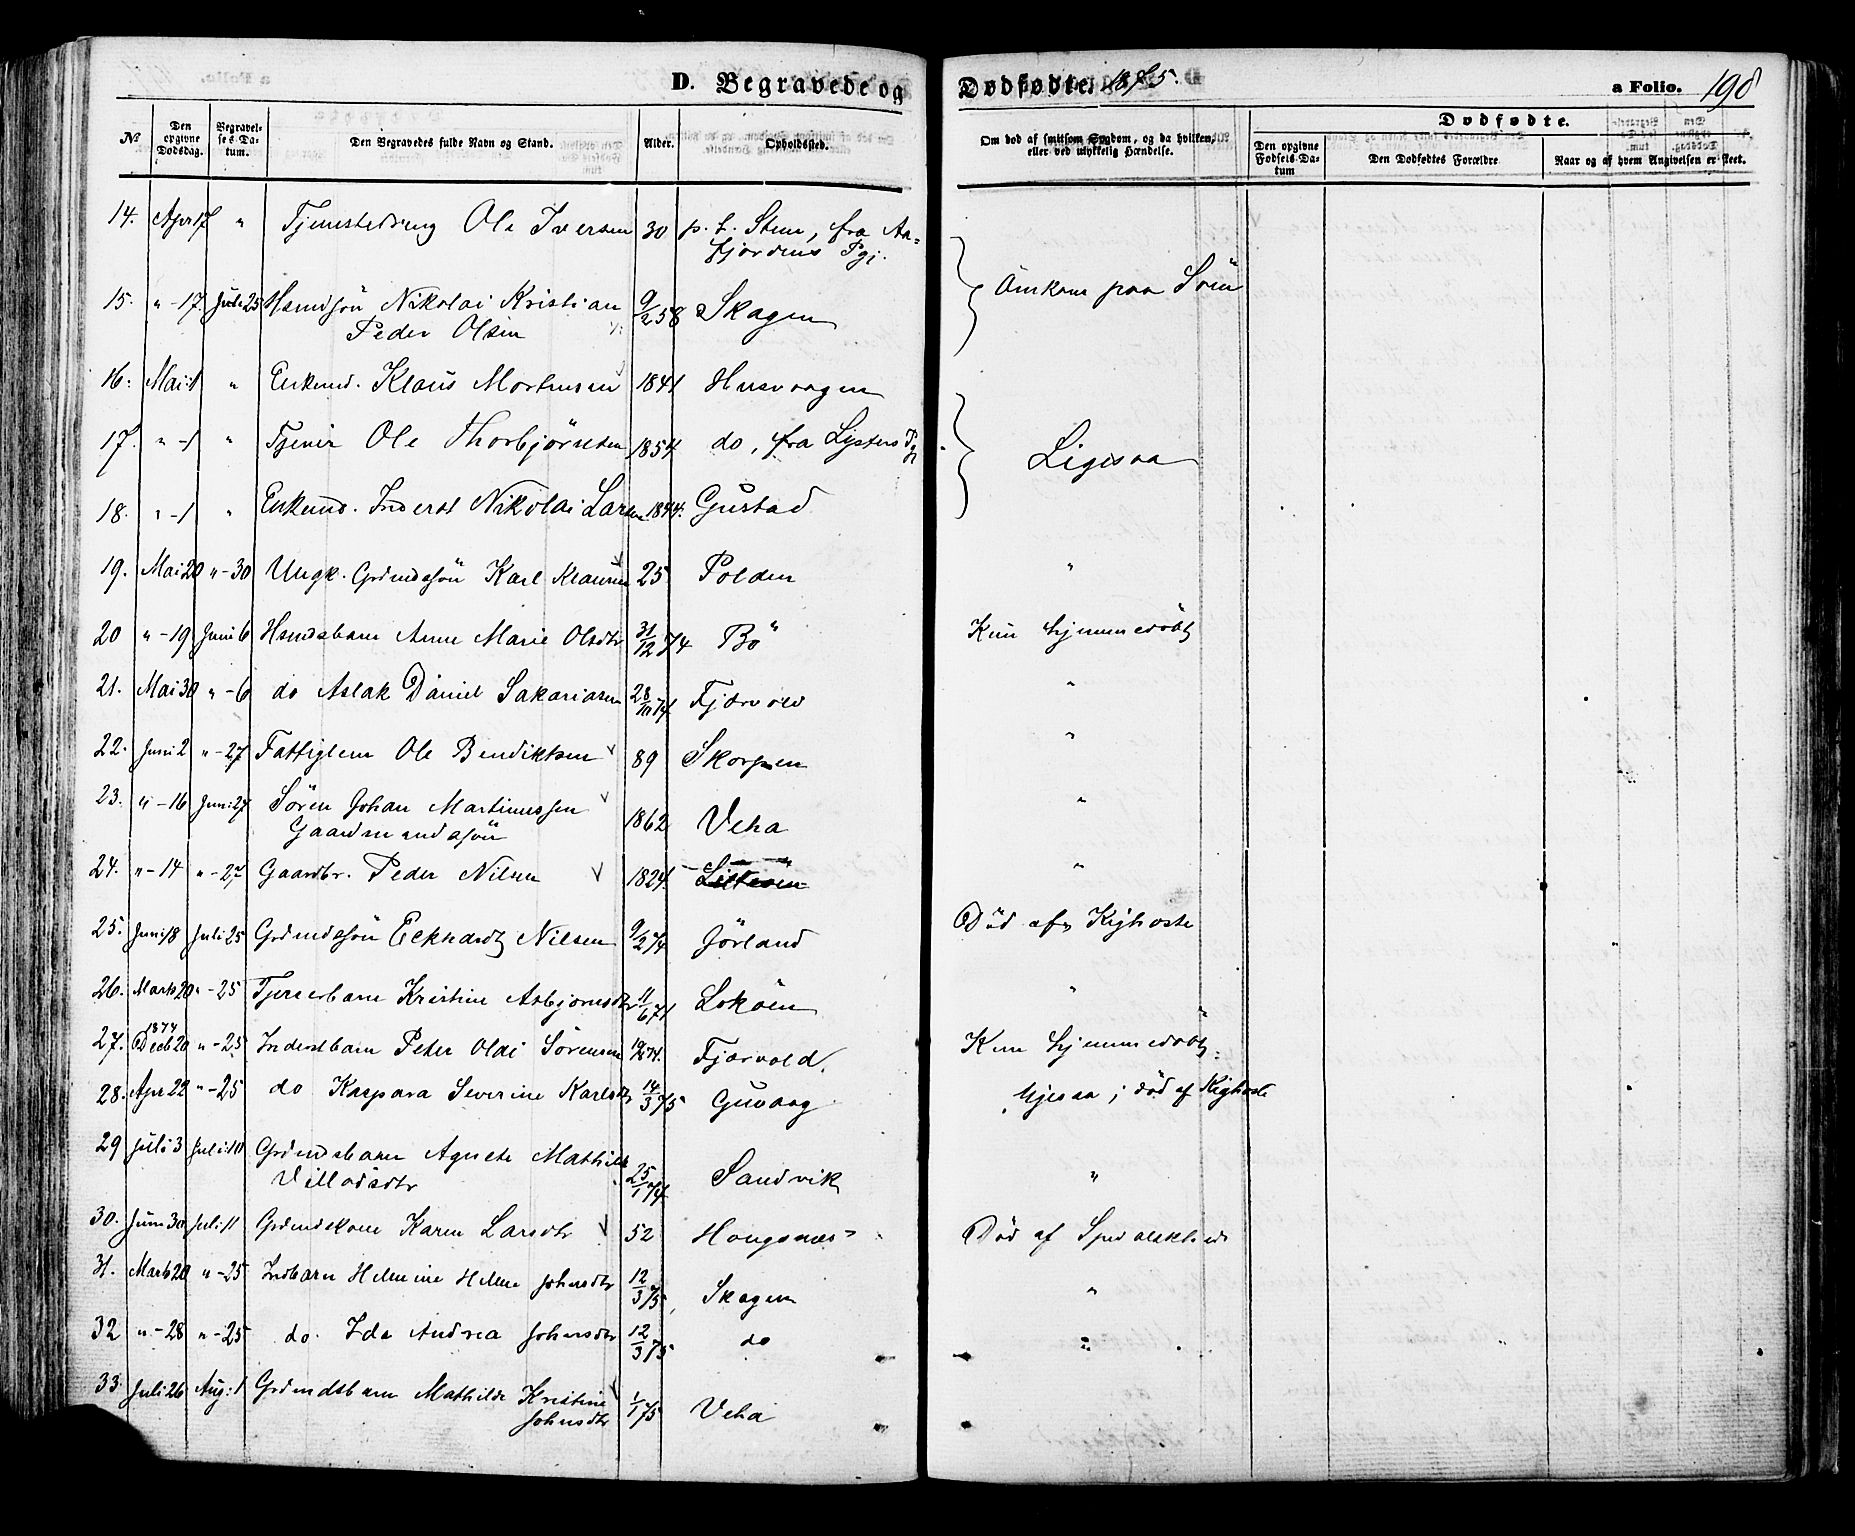 D. Begravede og Dødfødte. 1875. a Folio. 198
№ Den opgivne Dødsdag. Begravelses-Datum. Den Begravedes fulde Navn og Stand. Alder. Opholdssted. Om død af smitsom Sygdom, og da hvilken, eller ved ulykkelig Hændelse. Dødfødte. Den opgivne Fødsels-Datum Den Dødfødtes Forældre Naar og af hvem Angivelsen er skeet.
14. Apr 17 " Ole Iversen 30 p. t. Stene, fra Aa=
fjordens Pgj.
15. " - 17. Juli 25 Nikolai Kristian 9/2 58 Skagen Omkom paa Søen
Peder Olsen
16. Mai 1 " Enkemd. Klaus Mortensen 1841 Husvaagen
17. " - 1 " Tjener Ole Thorbjörnsen 1854 do, fra Lysters Pgj Ligesaa
18. " - 1 " Enkemd. Inderst Nikolai Larsen 1844. Gustad
19. Mai 20 " - 30 Ungk. Grdmdssön Karl Klausen 25 Polden "
20 " - 19 Juni 6 Hsmdsbarn Anne Marie Olsdtr 31/12 74 Bö Kun hjemmedöbt
21. Mai 30 " - 6 do Aslak Daniel Sakariasen 28/10 74 Fjærvold "
22. Juni 2 " - 27 Fattiglem Ole Bendiktsen 89 Skorpen "
23. " - 16 Juni 27 Sören Johan Martinussen 1862 Veha "
Gaardmandssön
24. " - 14 " - 27 Gaardbr. Peder Nilsen 1824. "
25. Juni 18 Juli 25 Grdmdssön Eckhardt Nilsen 9/2 74 Jörland Död af Kighoste
26. Marts 20 " - 25 Tjenerbarn Kristine Asbjörnsdtr 11/6 71 Loköen "
27. 1874 Decb 20 " - 25 Inderstbarn Peter Oldi Sörensen Fjærvold. Kun hjemmedöbt
28. Apr 22 " - 25 do Kaspara Severine Karlsdtr 14/3 75 Guvaag Ligesaa; död af Kighoste
29 Juli 3 Juli 10 Grdmdsbarn Agnete Mathilde 25/1 74 Sandvik "
Villadsdtr
30. Juni 30 Juli 11 Grdmdskone Karen Larsdtr 52 Hougsnæs Död af Spedalskhed
31. Marts 20 " - 25 Indbarn Helmine Helene Johnsdtr 12/3 75 Skagen "
32 " - 28 " - 25 do. Ida Andrea Johnsdtr 12/3 75 do "
33. Juli 26 Aug: 1 Grdmdsbarn Mathilde Kristine 1/1 75 Veha
Johnsdtr